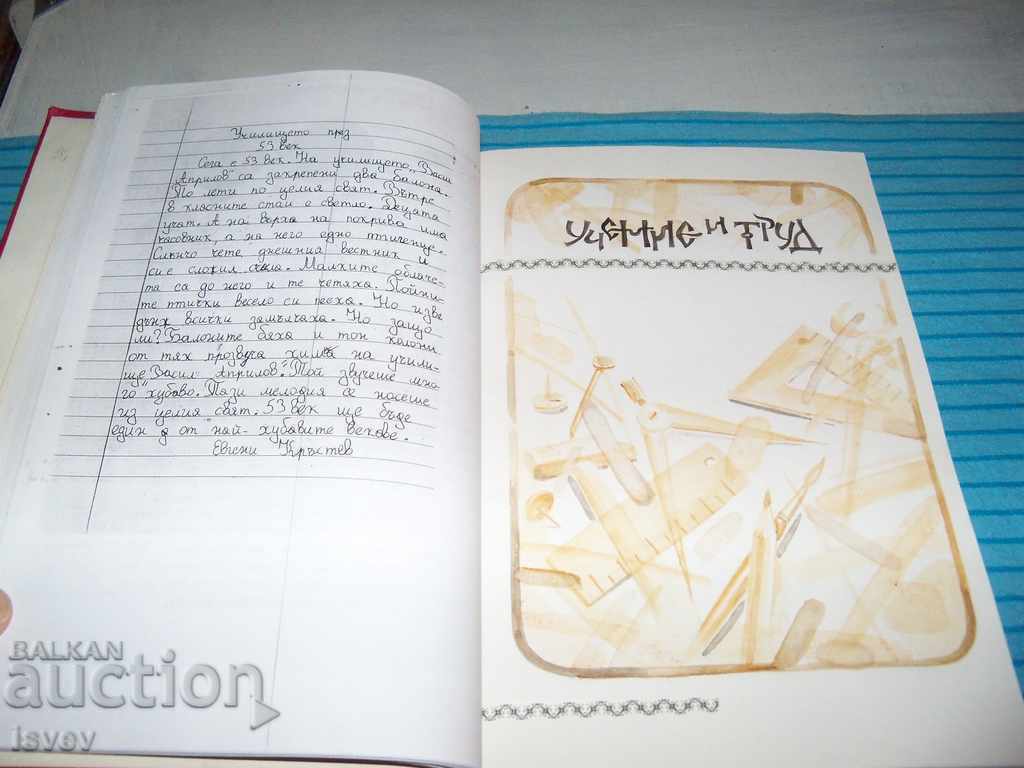 Училището през
53 век
Сега е 53 век. На училището „Васил
Априлов" са закрепени два балона.
То лети по целия свят. Вътре
в класните стаи е светло. Децата
учат. А на върха на покрива има
часовник, а на него едно птиченце.
Слънчо чете днешния вестник и
си е сложил очила. Малките облаче-
та са до него и те четяха. Пойни-
те птички весело си пееха. Но изве
дънж всички замълчаха. Но защо
ли? Балоните бяха и тон колони
от тях прозвуча химна на учили-
ще „Васил Априлов". Той звучеше мно-
го хубаво. Тази мелодия се носеше
из целия свят. 53 век ще бъде
един от най-хубавите векове.
Евгени Кръстев
УЧЕНИЕ И ТРУД
BALKAN
auction
isvev